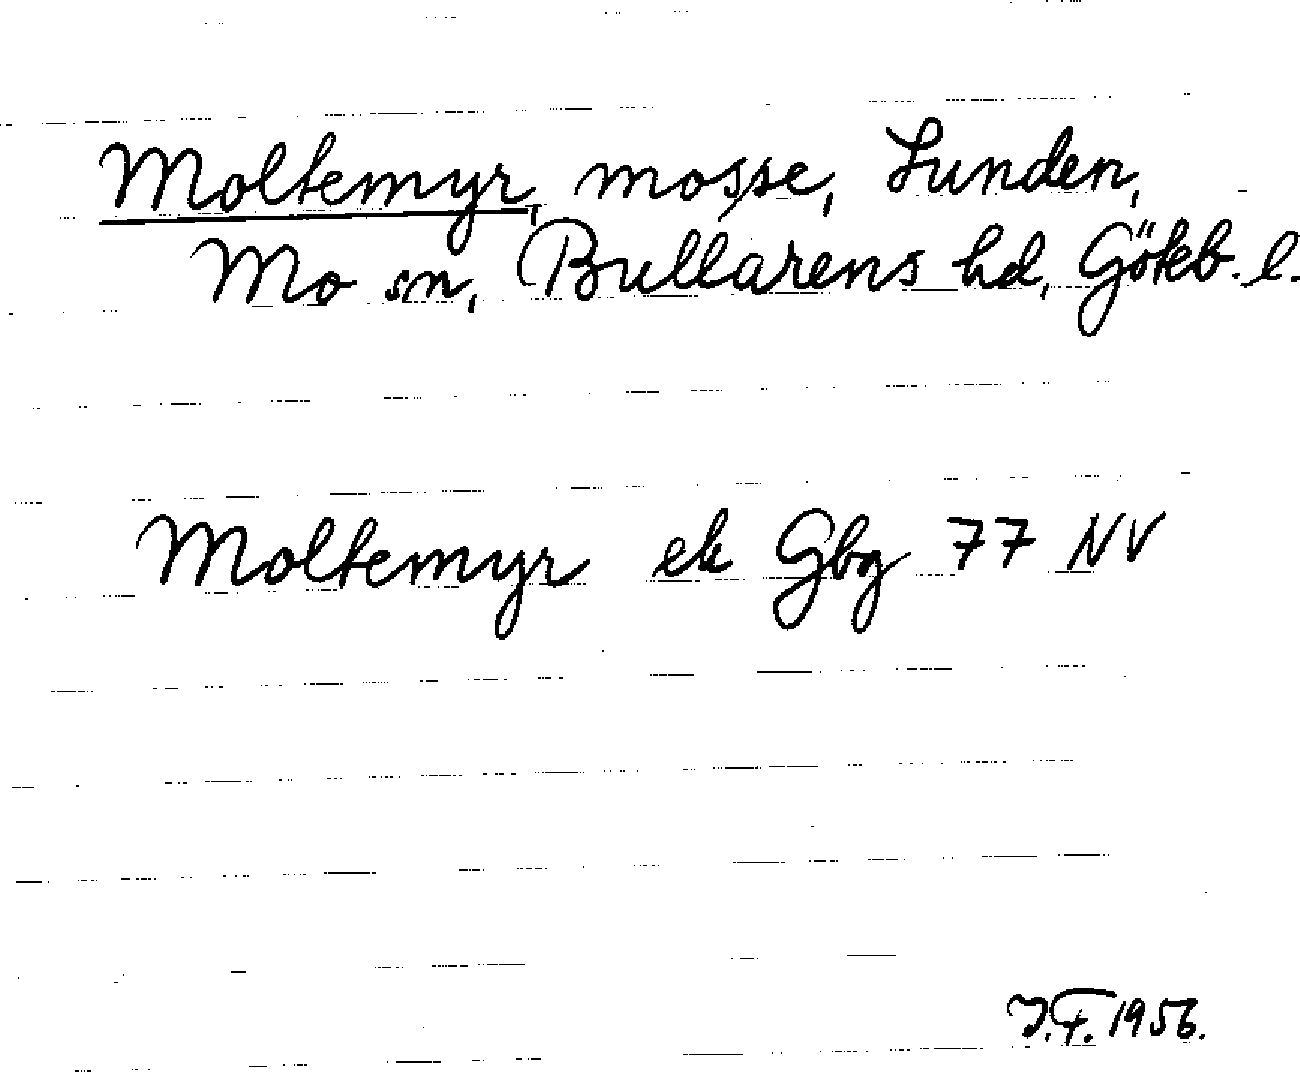 Moltemyr, mosse, Lunden,
Mo sn, Bullarens hd, Göteb. l.
Moltemyr ek Gbg 77 NV
J.F. 1956.